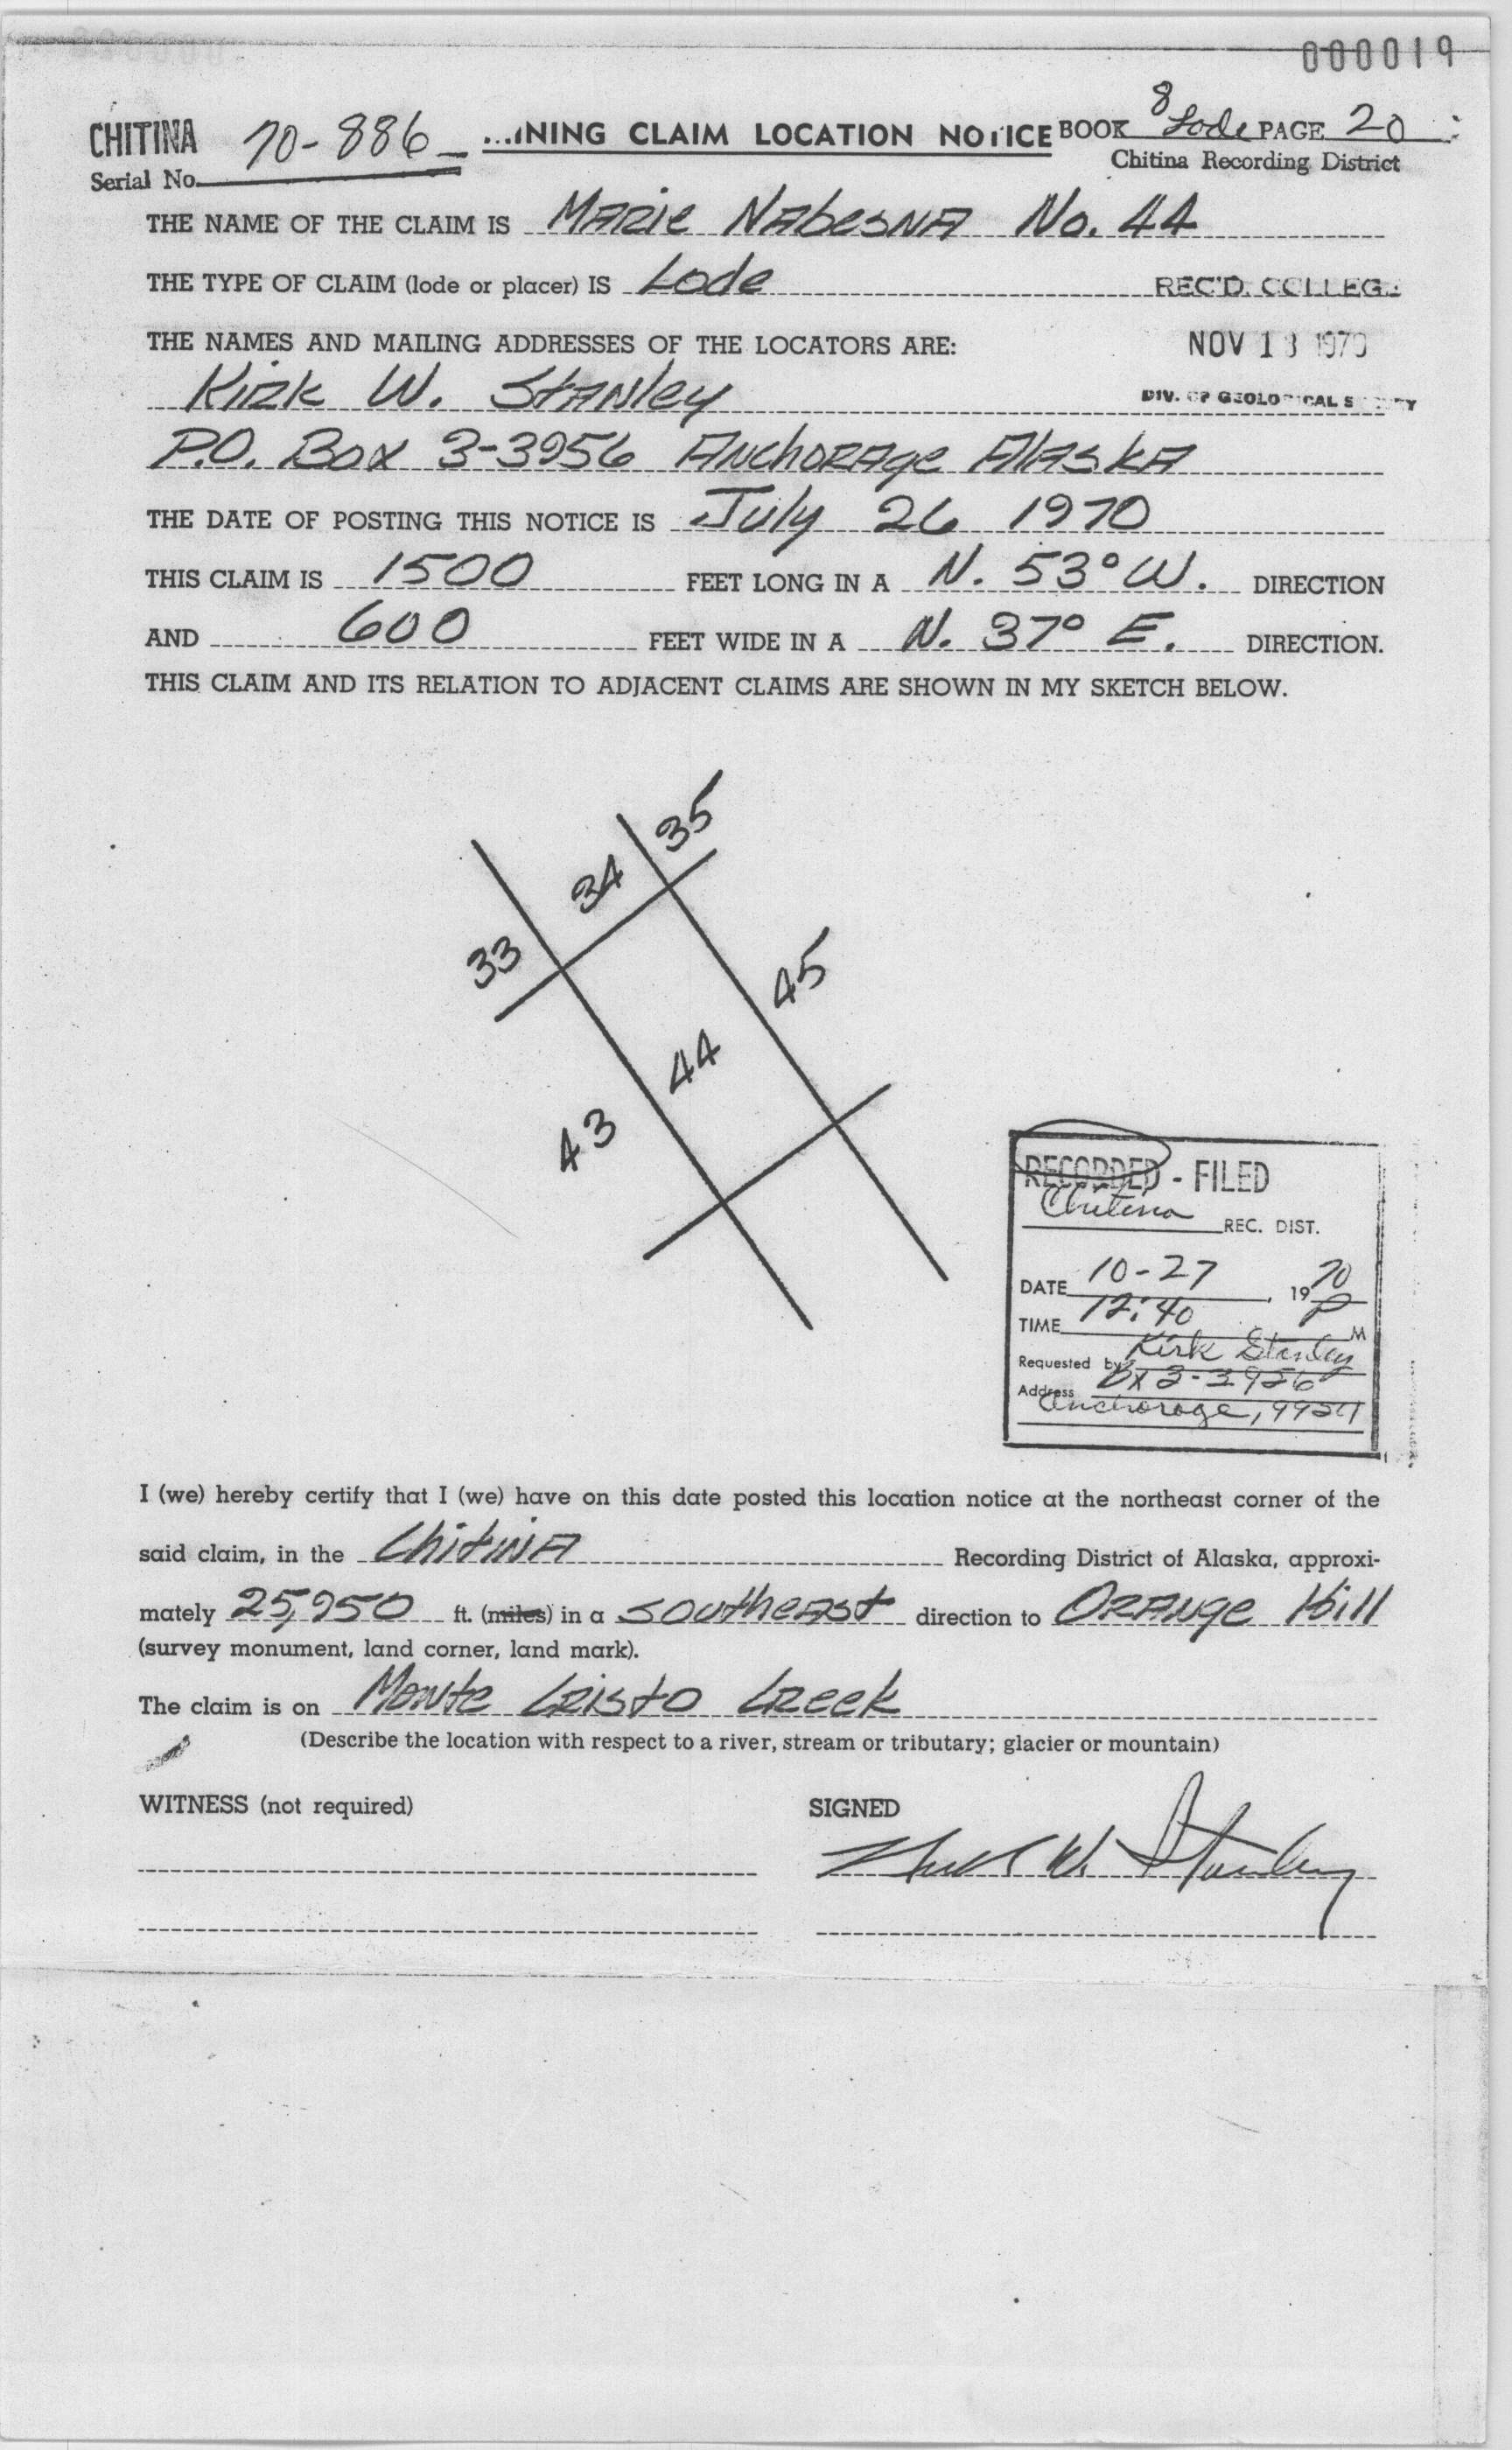 000019
CHITINA 70-886 ...INING CLAIM LOCATION NOTICE BOOK 8 Lode PAGE 20
Serial No. Chitina Recording District
THE NAME OF THE CLAIM IS Marie Nabesna No. 44
THE TYPE OF CLAIM (lode or placer) IS Lode REC'D. COLLEGE
THE NAMES AND MAILING ADDRESSES OF THE LOCATORS ARE: NOV 13 1970
Kirk W. Stanley DIV. OF GEOLOGICAL S
P.O. Box 3-3956 Anchorage Alaska
THE DATE OF POSTING THIS NOTICE IS July 26 1970
THIS CLAIM IS 1500 FEET LONG IN A N. 53° W. DIRECTION
AND 600 FEET WIDE IN A N. 37° E. DIRECTION.
THIS CLAIM AND ITS RELATION TO ADJACENT CLAIMS ARE SHOWN IN MY SKETCH BELOW.
35
34
33
45
44
43
RECORDED - FILED
Chitina REC. DIST.
DATE 10-27, 1970
TIME 12:40 P M
Requested by Kirk Stanley
Address Bx 3-3956
Anchorage,
I (we) hereby certify that I (we) have on this date posted this location notice at the northeast corner of the
said claim, in the Chitina Recording District of Alaska, approxi-
mately 25,950 ft. (miles) in a southeast direction to Orange Hill
(survey monument, land corner, land mark).
The claim is on Monte Cristo Creek
(Describe the location with respect to a river, stream or tributary; glacier or mountain)
WITNESS (not required) SIGNED
Kirk W. Stanley